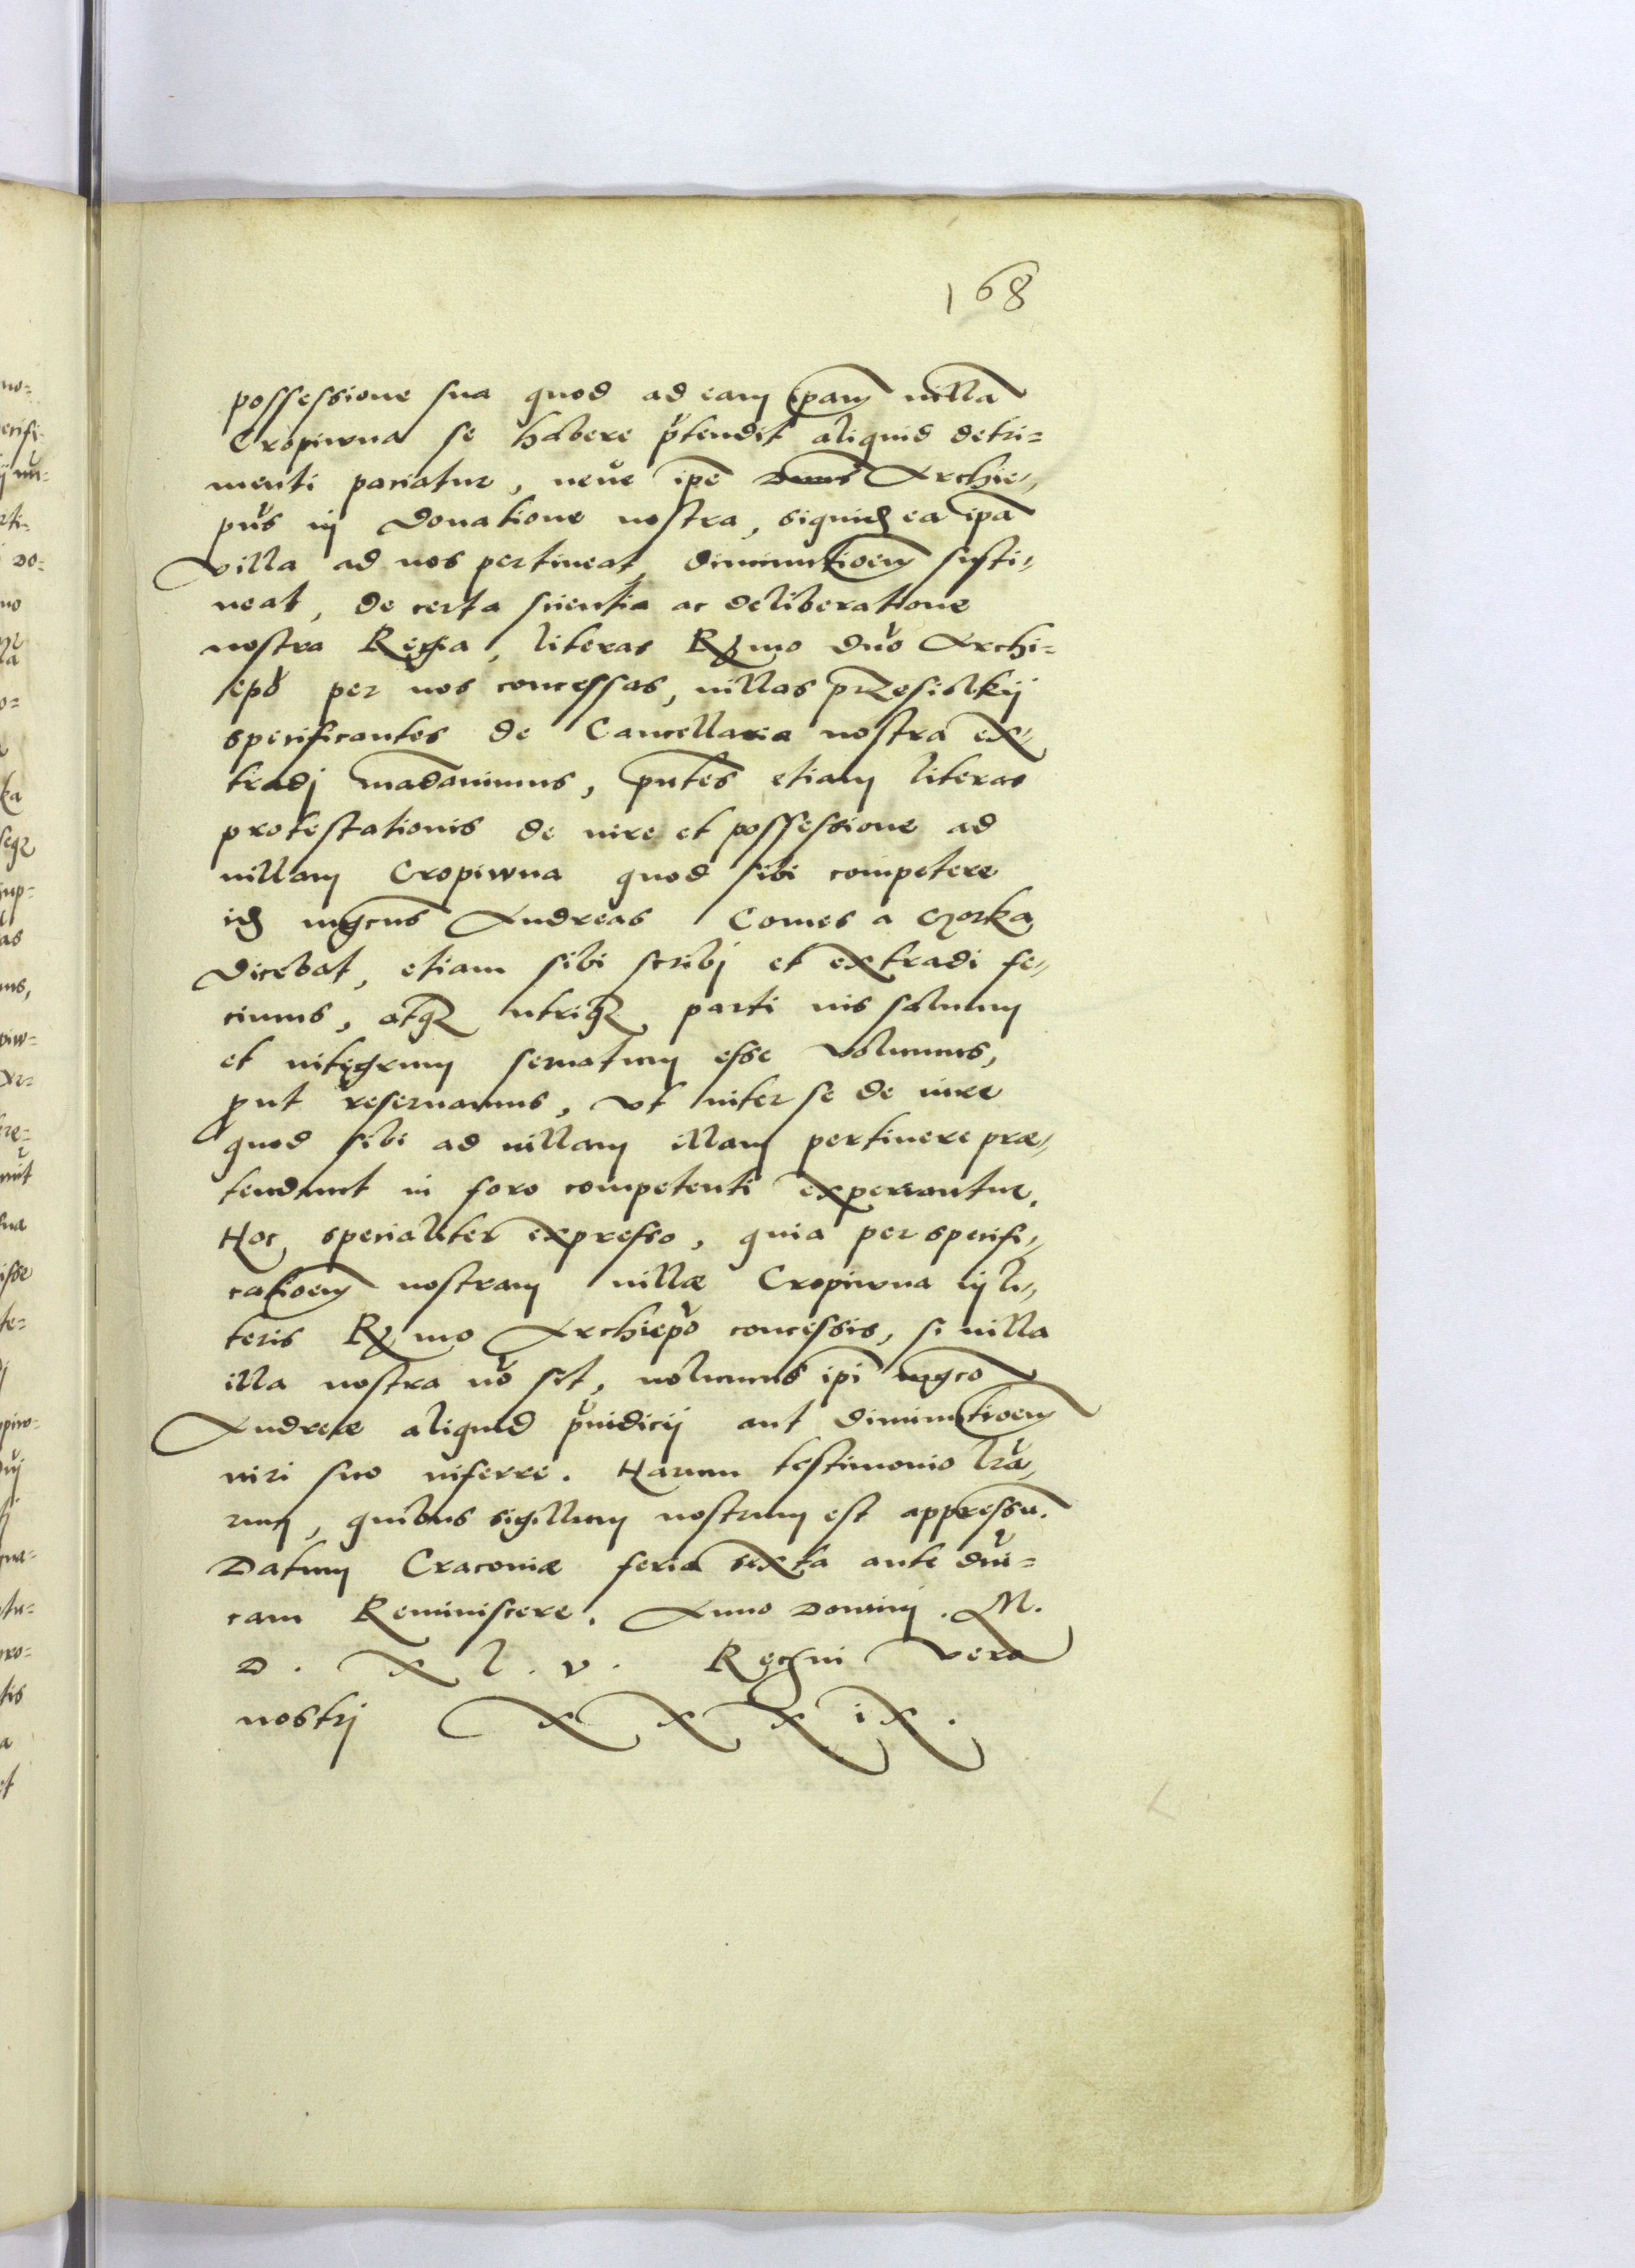 168
possessione sua quod ad eam ipam villa
Cropiwna se habere ptendit aliquid detri=
menti pariatur, neue ipe Archie,,
pus in Donatione nostra, siquid ea ipa
villa ad nos pertineat, diminutioem susti,,
neat, de certa scientia ac deliberatione
nostra Regia, literas Rmo dno Archi=
epo per nos concessas, villas przesislkij
specificantes de Cancellaria nostra ex,,
tradj madauimus, pntes etiam literas
protestationis de iure et possessione ad
villam Cropiwna quod sibi competere
id mgcus Andreas Comes a Gorka
Dicebat, etiam sibi scribj et extradi fe,,
cimus, atq utriq parti ius saluum
et integrum seruatum esse volumus,
put reseruamus, vt inter se de iure
quod sibi ad villam illam pertinere præ,,
tendunt in foro competenti experiantur.
Hoc specialiter expresso, quia per specifi,,
catioem nostram villæ Cropiwna in li,,
teris Rmo Archiepo concessis, si villa
illa nostra no sit, nolumus ipi mgco
Andreæ aliquid piudicij aut diminutioem
iuri suo inferre. Harum testimonio lra,,
rum, quibus sigillum nostrum est appressu.
Datum Cracoviæ feria sexta ante dni=
cam Reminiscere. Anno Domini . M.
D . X l . v . Regni vero
nostrj X X X i X .